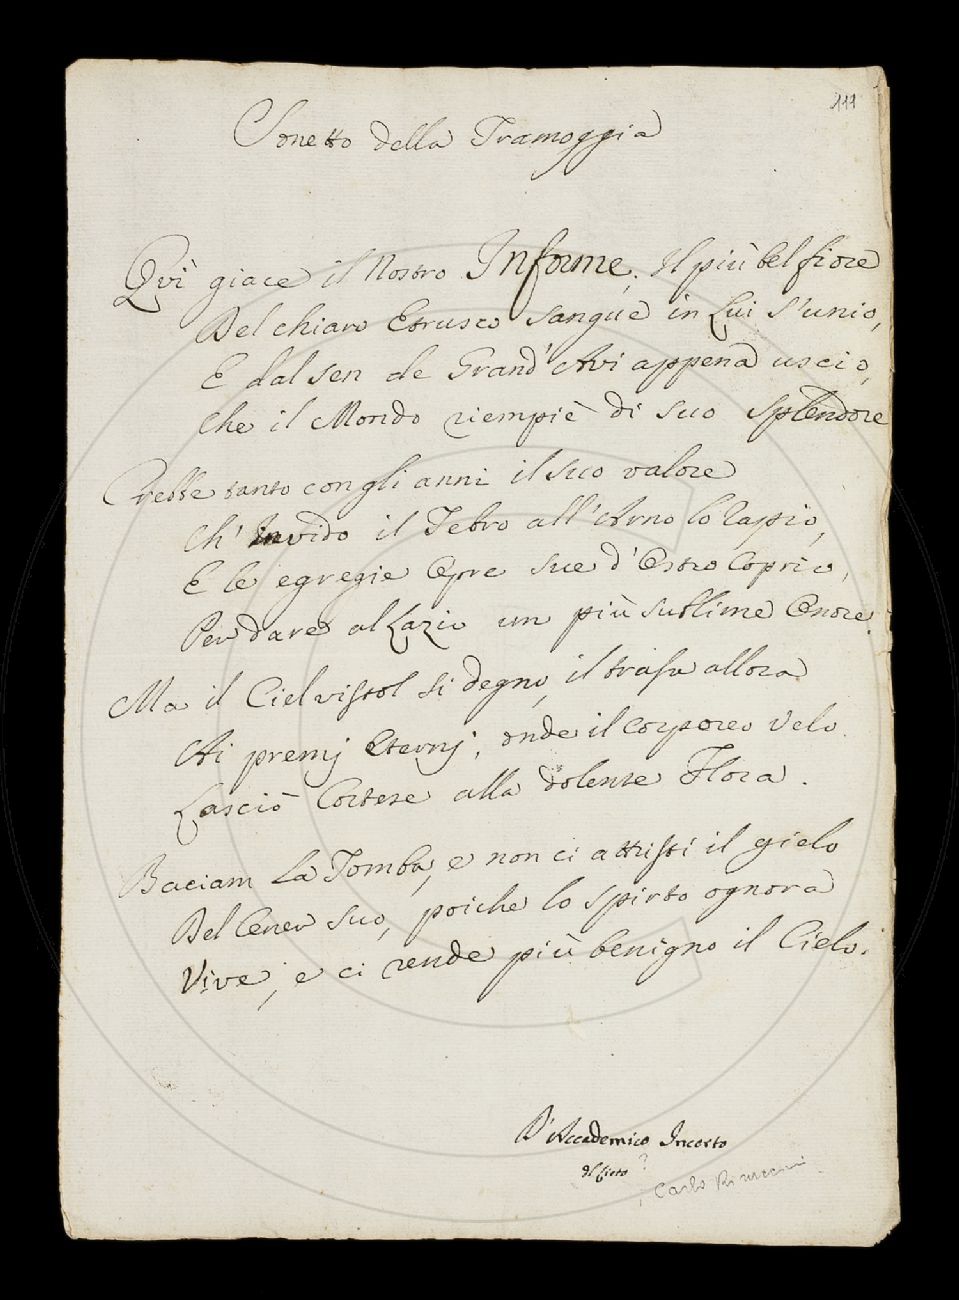 111
Sonetto della Tramoggia
Qvì giace il Nostro Informe. Il più bel fiore
Del chiaro Etrusco sangue in Lui s'unio,
E dal sen de Grand'Avi appena uscio,
Che il Mondo riempiè di suo splendore
Crebbe tanto con gli anni il suo valore
Ch' Invido il Tebro all'Arno lo rapio,
E le egregie Opre sue d'Ostro coprio,
Per dare al Lazio un più sublime Onore.
Ma il Ciel vistol sì degno, il trasse allora
Ai premj Eterni, onde il corporeo Velo
Lasciò Cortese alla dolente Flora.
Baciam La Tomba, e non ci attristi il gielo
Del Cener suo, poiche lo spirto ognora
Vive, e ci rende più benigno il Cielo.
D'Accademico Incerto
Carlo Rinuccini